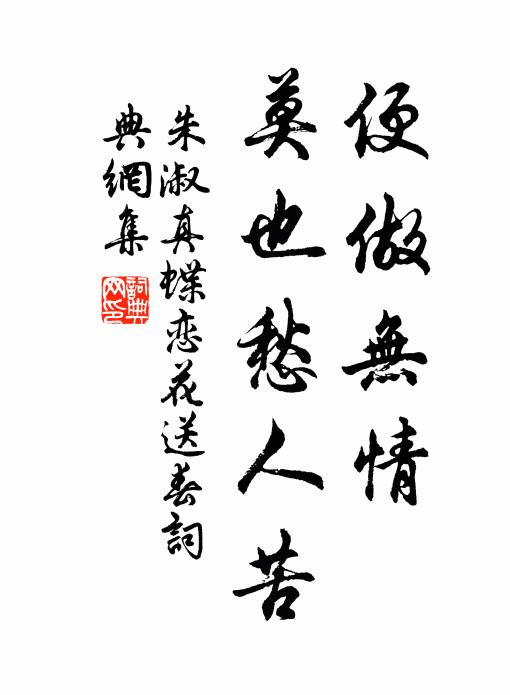 便做無情
莫也愁人苦
朱淑真蝶恋花送春詞
典網集
詞典網印